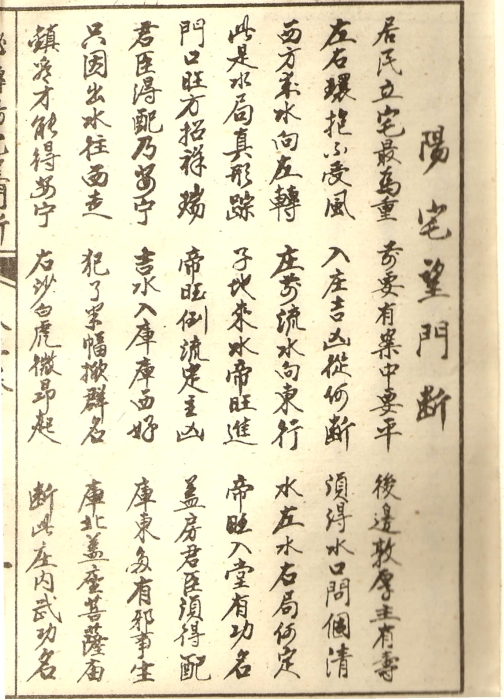 陽宅望門断
居民立宅最為重 前要有案中要平 後邊敦厚主有壽
左右環抱不受風 入庄吉凶從何断 須得水口問個清
西方来水向左轉 庄前流水向東行 水左水右局何定
此是水局真形踪 子地來水帝旺進 帝旺入堂有功名
門口旺方招祥瑞 帝旺倒流定主凶 盖房君臣須得配
君臣得配乃安宁 吉水入庫庫西好 庫東多有邪事生
只因出水往西走 犯了幅掀群名 庫北盖座菩薩庙
鎮才能得安宁 右沙白虎微昂起 断此庄内武功名